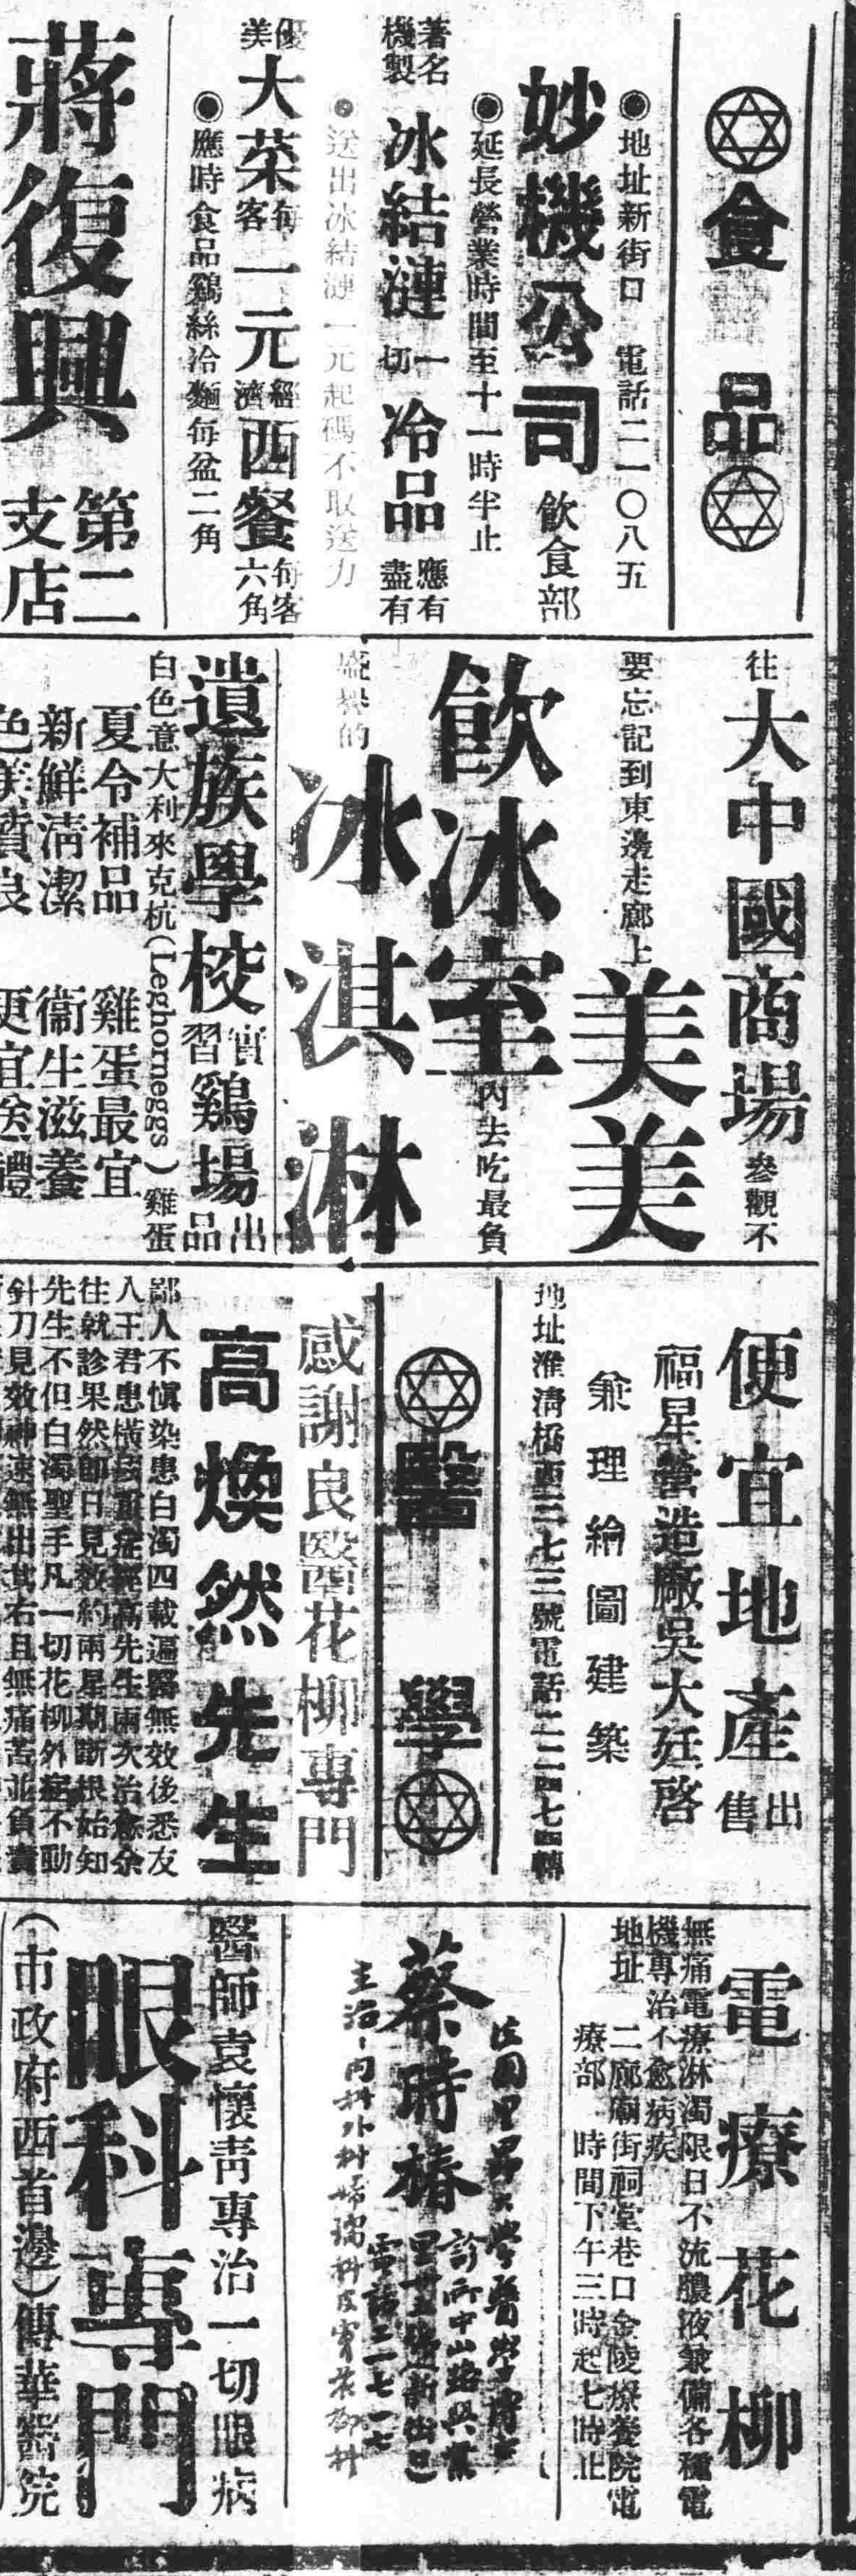 食品
地址新街口 電話二一〇八五
妙機公司 飲食部
延長營業時間至十一時半止
著名機製 冰結漣 一切 冷品 應有盡有
送出冰結漣一元起碼不取送力
優美 大菜 每客 一元 經濟 西餐 每客六角
應時食品鷄絲冷麵每盆二角
蔣復興 第二支店
往大中國商場參觀不
要忘記到東邊走廊上
美美
飲冰室內去吃最負
盛譽的
冰淇淋
遺族學校實習鷄場出品
白色意大利來克杭(Leghorneggs)雞蛋
夏令補品 雞蛋最宜
新鮮清潔 衞生滋養
色美質良 更宜送禮
便宜地產出售
福星營造廠吳大廷啓
兼理繪圖建築
地址淮淸橋西二七三號電話二二四七四轉
醫學
感謝良醫花柳專門
高煥然先生
鄙人不愼染患白濁四載遍醫無效後悉友
人王君患橫痃重症經高先生兩次治愈余
往就診果然卽日見效約兩星期斷根始知
先生不但白濁聖手凡一切花柳外症不動
針刀見效神速無出其右且無痛苦並負責
電療花柳
無痛電療淋濁限日不流膿液兼備各種電
機專治不愈病疾
地址 二廊廟街祠堂巷口金陵療養院電
療部 時間下午三時起七時止
法國里昂大學醫學博士
蔡時椿
診所中山路與業
里廿五號(近新街口)
電話二一七一七
主治—內科外科婦孺科及實花柳科
醫師袁懷靑專治一切眼病
眼科專門
(市政府西首邊)傅華醫院